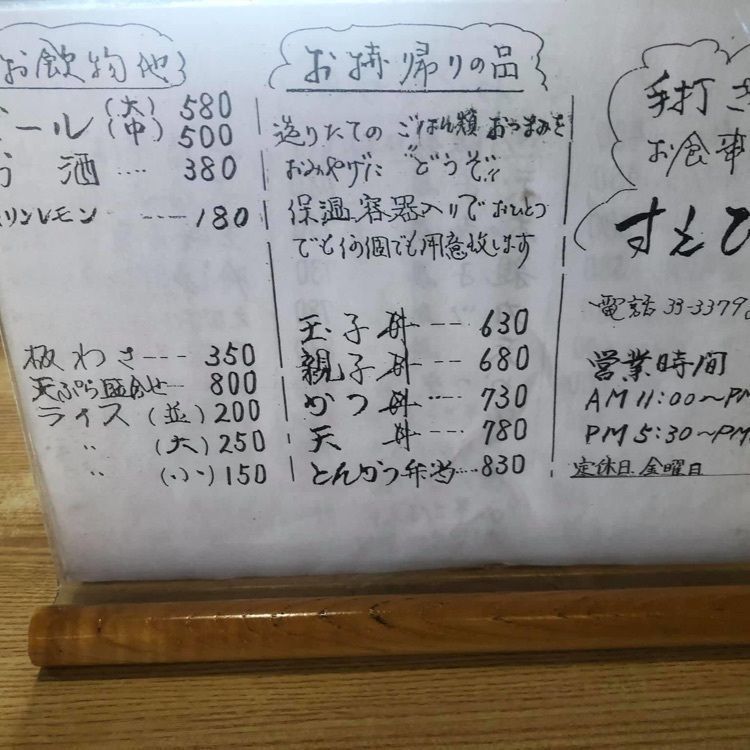 お飲物他
ール(大) 580
(中) 500
酒 .... 380
リンレモン ----- 180
板わさ --- 350
天ぷら盛合せ --- 800
ライス(並) 200
〃 (大) 250
〃 (小) 150
お持帰りの品
造りたての ごはん類 おつまみを
おみやげに “どうぞ”
保温容器入りで おひとつ
でも何個でも用意致します
玉子丼 --- 630
親子丼 --- 680
かつ丼 .... 730
天丼 --- 780
とんかつ弁当 .... 830
手打き
お食事
すえひ
電話 33-3379
営業時間
AM 11:00〜PM
PM 5:30〜PM
定休日 金曜日